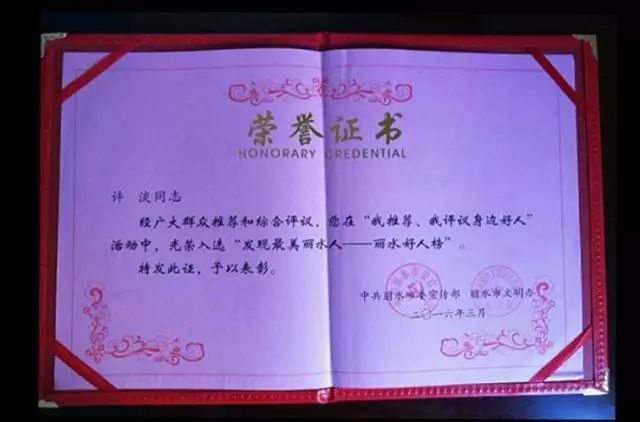 荣誉证书
HONORARY CREDENTIAL
许 淡同志
经广大群众推荐和综合评议，您在“我推荐、我评议身边好人”
活动中，光荣入选“发现最美丽水人——丽水好人榜”。
特发此证，予以表彰。
中共丽水市委宣传部 丽水市文明办
二〇一六年三月